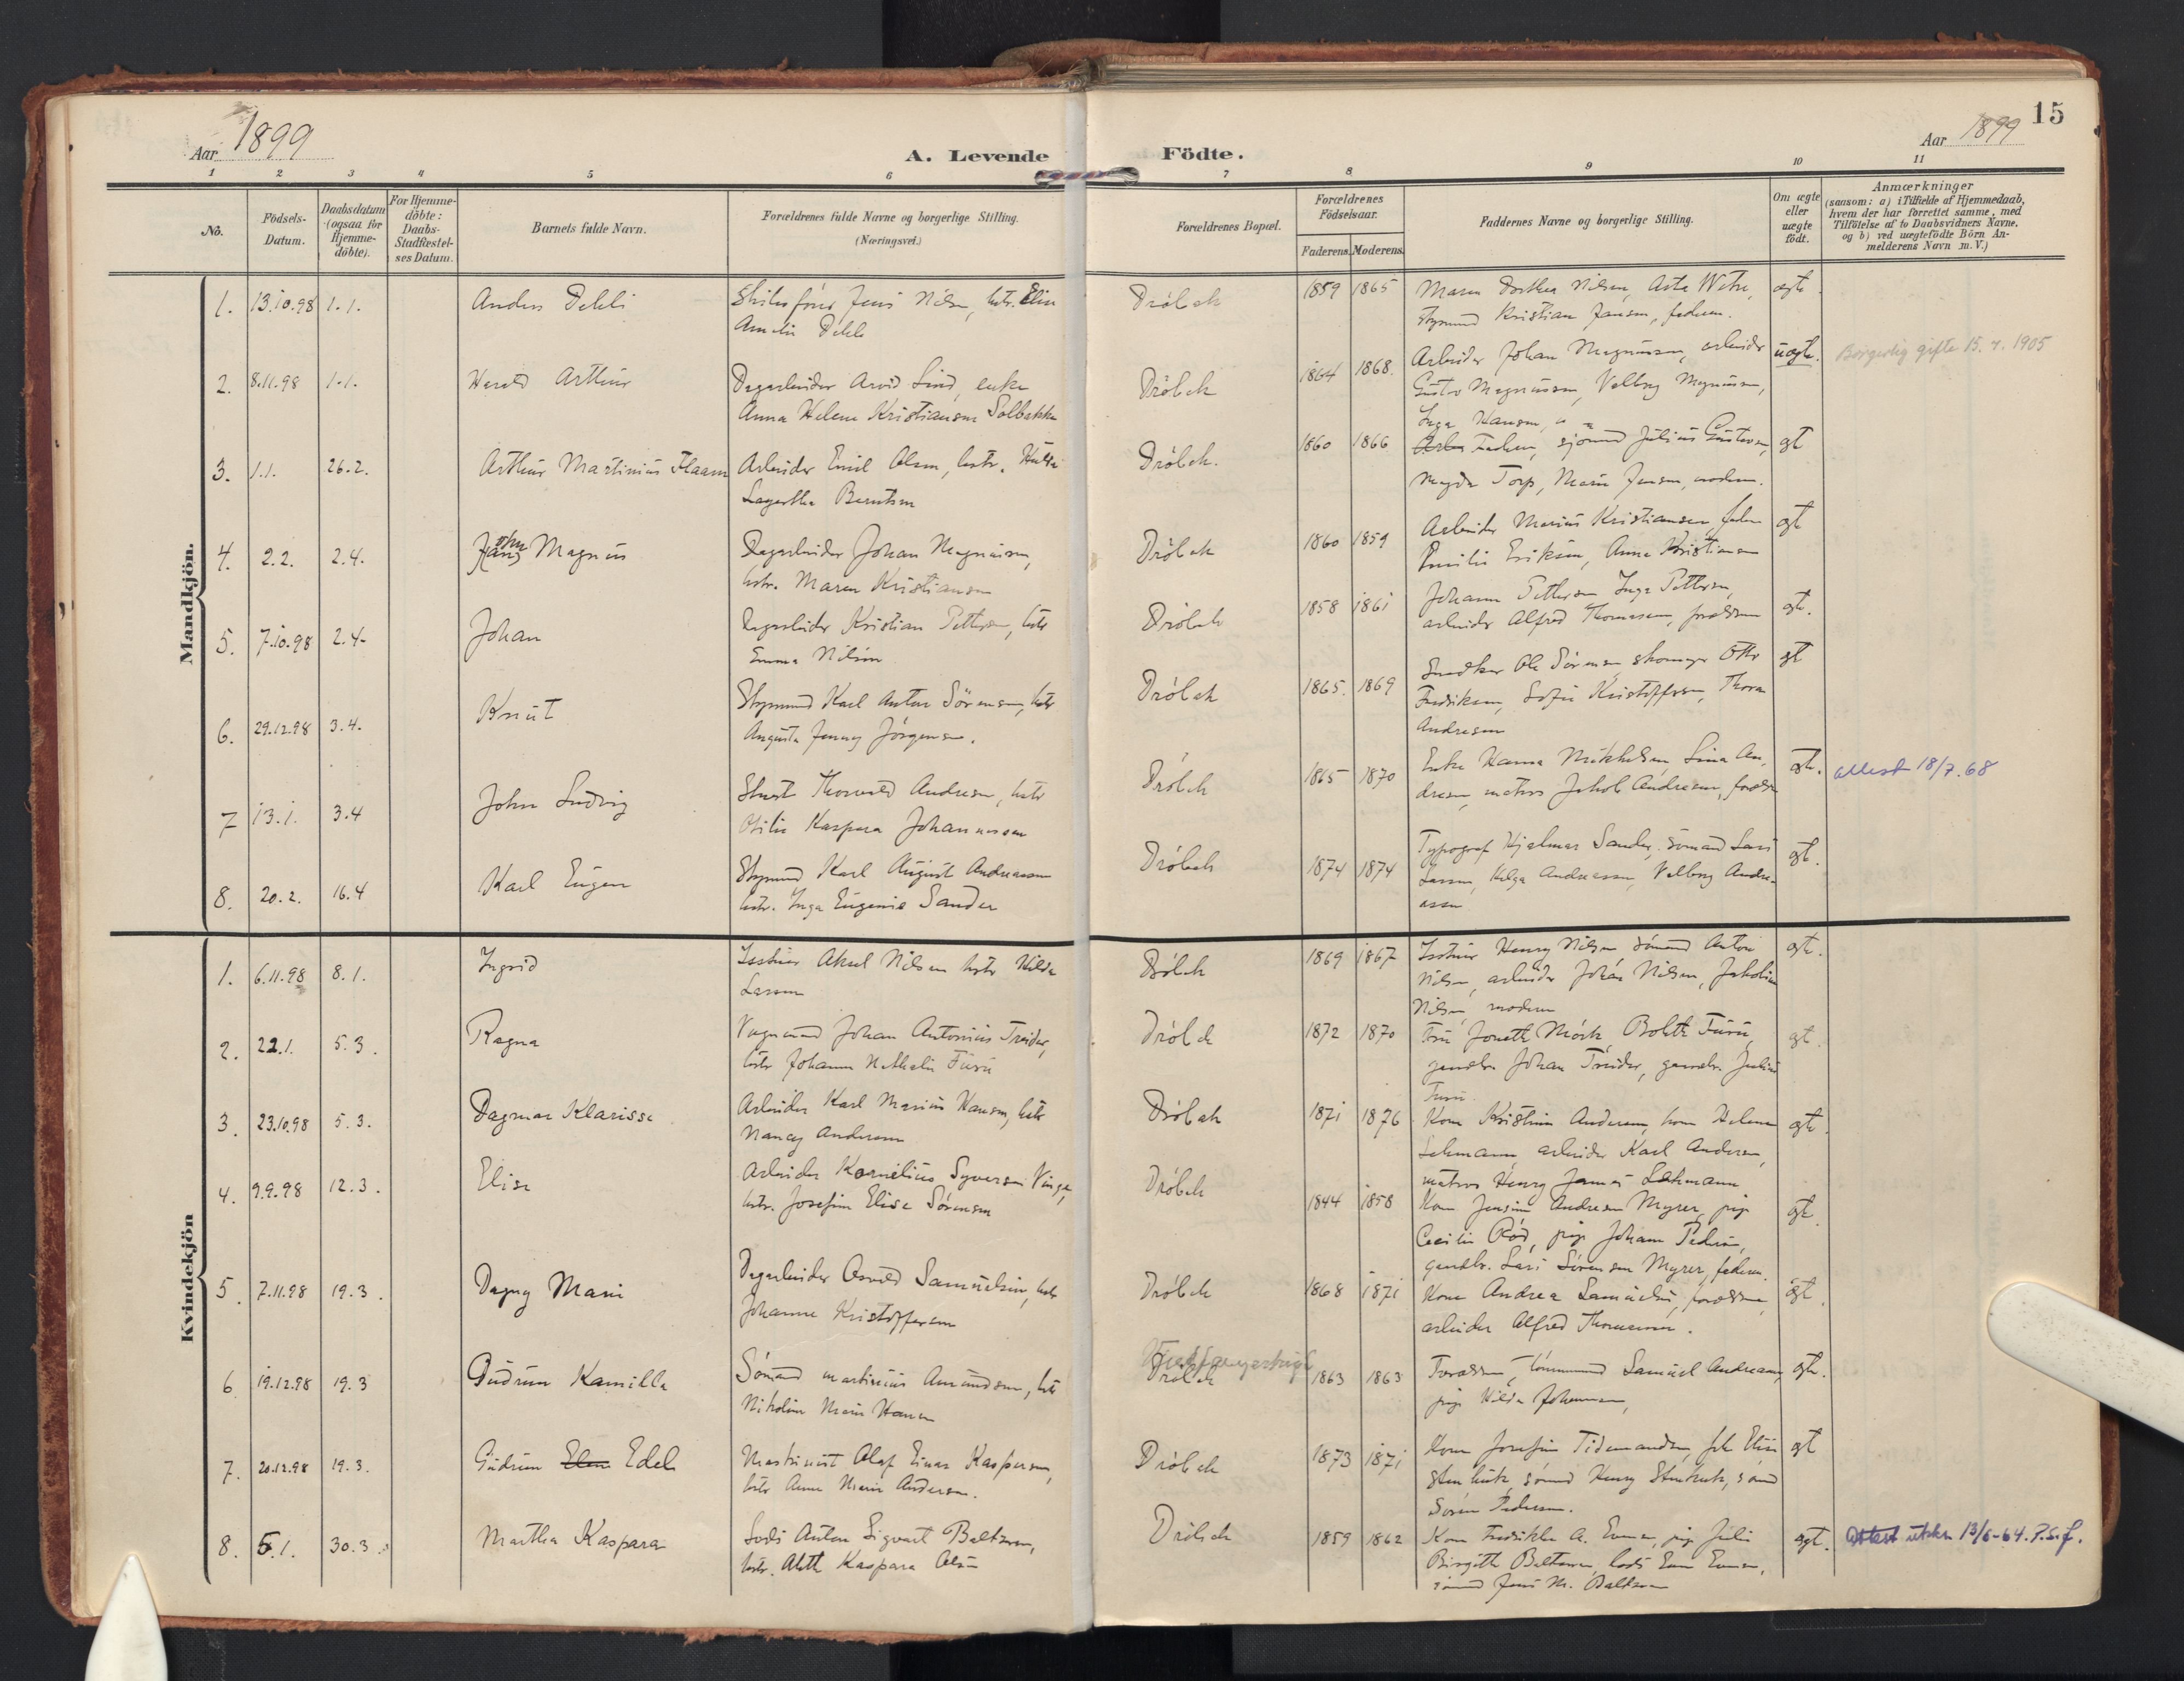 15
Aar 1899
A. Levende
Födte.
Aar 1899
1 2 3 4 5 6 7 8 9 10 11
No.
Födsels-
Datum.
Daabsdatum
(ogsaa for
Hjemme-
döbte).
For Hjemme-
döbte:
Daabs-
Stadfæstel-
ses Datum.
Barnets fulde Navn.
Forældrenes fulde Navne og borgerlige Stilling.
(Næringsvei.)
Forældrenes Bopæl.
Forældrenes
Födselsaar.
Faderens. Moderens.
Faddernes Navne og borgerlige Stilling.
Om ægte
eller
uægte
födt.
Anmærkninger
(saasom: a) i Tilfælde af Hjemmedaab,
hvem der har forrettet samme, med
Tilföielse af to Daabsvidners Navne,
og b) ved uægtefödte Börn An-
melderens Navn m. V.)
Mandkjön.
1. 13.10.98 1.1. Anders Dehli
Skibsförer Jens Nilsen, hstr. Elise
Amalie Dehli
Dröbak 1859 1865
Maren Dorthea Nilsen, Asta Wetre,
styrmand Kristian Jansen, faderen.
ægte.
2. 8.11.98 1.1. Harald Arthur
Dagarbeider Arvid Lind, enke
Anna Helene Kristiansen Solbakke
Dröbak 1864 1868.
Arbeider Johan Magnussen, arbeider
Gustav Magnussen, Valborg Magnussen,
Inga Hansen,
uægte.
Borgerlig gifte 15.4.1905
3. 1.1. 26.2. Arthur Martinius Flaam
Arbeider Emil Olsen, hstr. Hulda
Lagertha Berntsen
Dröbak. 1860 1866
Faderen, sjömand Julius Gustavsen,
Magda Torp, Marie Jensen, moderen.
ægt
4. 2.2. 2.4. Magnus
Dagarbeider Johan Magnussen,
hstr. Maren Kristiansen
Dröbak 1860 1859
Arbeider Marius Kristiansen, faderen
Emilie Eriksen, Anna Kristiansen
ægt
5. 7.10.98 2.4. Johan
Dagarbeider Kristian Pettersen, hstr
Emma Nilsen
Dröbak 1858 1861
Johanne Pettersen Inga Pettersen,
arbeider Alfred Thomassen, forældrene
ægte.
6. 29.12.98 3.4. Knut
Styrmand Karl Anton Sörensen, hstr
Augusta Jenny Jörgensen.
Dröbak 1865. 1869
Snedker Ole Sörensen skomager Otto
Fredriksen, Sofie Kristoffersen, Thora
Andresen
ægt
7 13.1. 3.4 John Ludvig
Thorvald Andresen, hstr
Otilie Kaspara Johannessen
Dröbak 1865 1870
Enke Hanna Mikkelsen, Lina An-
dresen, matros Jakob Andresen, forældre
ægte.
attest 18/7.68
8. 20.2. 16.4 Karl Eugen
Styrmand Karl August Andreassen
hstr. Inga Eugenie Sander
Dröbak 1874 1874
Typograf Hjalmar Sander, sömand Lars
Larsen, Helga Andreassen, Valborg Andre-
assen
ægt.
Kvindekjön
1. 6.11.98 8.1. Ingrid
Aksel Nilsen hstr Hilda
Larsen
Dröbak 1869 1867
Henry Nilsen sömand Anton
Nilsen, arbeider Johan Nilsen, Jakobine
Nilsen, moderen
ægte.
2. 22.1. 5.3. Ragna
Vognmand Johan Antonius Treider,
hstr Johanne Nathalie Furu
Dröbak 1872 1870
Fru Jonette Mörk, Bolette Furu,
gaardbr. Johan Treider, gaardbr. Julius
Furu.
ægt.
3. 23.10.98 5.3. Dagmar Klarisse
Arbeider Karl Marius Hansen, hstr
Nancy Andersen
Dröbak 1871 1876
Kone Kristine Andersen, kone Helene
Lehmann, arbeider Karl Andersen,
matros Henry James Lehmann
ægte.
4. 9.9.98 12.3. Elise
Arbeider Kornelius Syversen Vinge,
hstr. Josefine Elise Sörensen
Dröbak 1844 1858
Kone Jensine Andresen Myrer, pige
Cecilie Röd, pige Johanne Pedersen,
gaardbr. Lars Sörensen Myrer, faderen.
ægte.
5. 7.11.98 19.3. Dagny Marie
Dagarbeider Osvald Samuelsen, hstr
Johanne Kristoffersen
Dröbak 1868 1871
Kone Andrea Samuelsen, forældrene,
arbeider Alfred Thomassen.
ægt.
6. 19.12.98 19.3 Gudrun Kamilla
Sömand Martinius Amundsen, hstr
Nikoline Marie Hansen
Dröbak 1863 1863
Forældrene, tömmermand Samuel Andreassen,
pige Hilda Johannessen,
ægte.
7. 20.12.98 19.3. Gudrun Edele
Maskinist Olaf Einar Kaspersen,
hstr Anna Marie Andersen.
Dröbak 1873 1871
Kone Josefine Tidemandsen, frk Elise
Stenbuk, sömand Henry Stenbuk, sömd
Sören Pedersen.
ægt
8. 5.1. 30.3. Martha Kaspara
Lods Anton Sigvart Baltzersen,
hstr. Alette Kaspara Olsen
Dröbak 1859 1862
Kone Fredrikke A. Evensen, pige Julie
Birgitte Baltzersen, lods Even Evensen,
sömand Jens M. Baltzersen
ægt.
Attest utskr. 13/6-64. P.S.f.